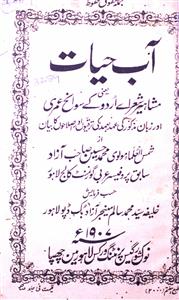 آب حیات
یعنی
مشاہیر شعراے اُردو کے سوانح عمری
اور زبان مذکور کی عہد بعہد کی ترقیوں اور اصلاحوں کا بیان
از
شمس العلما مولوی محمد حسین صاحب آزاد
سابق پروفیسر عربی گورنمنٹ کالج لاہور
حسب فرمایش
خلیفہ سید محمد سالم منیجر آزاد بک ڈپو لاہور
۱۹۰۷ء
لاہور میں چھپا